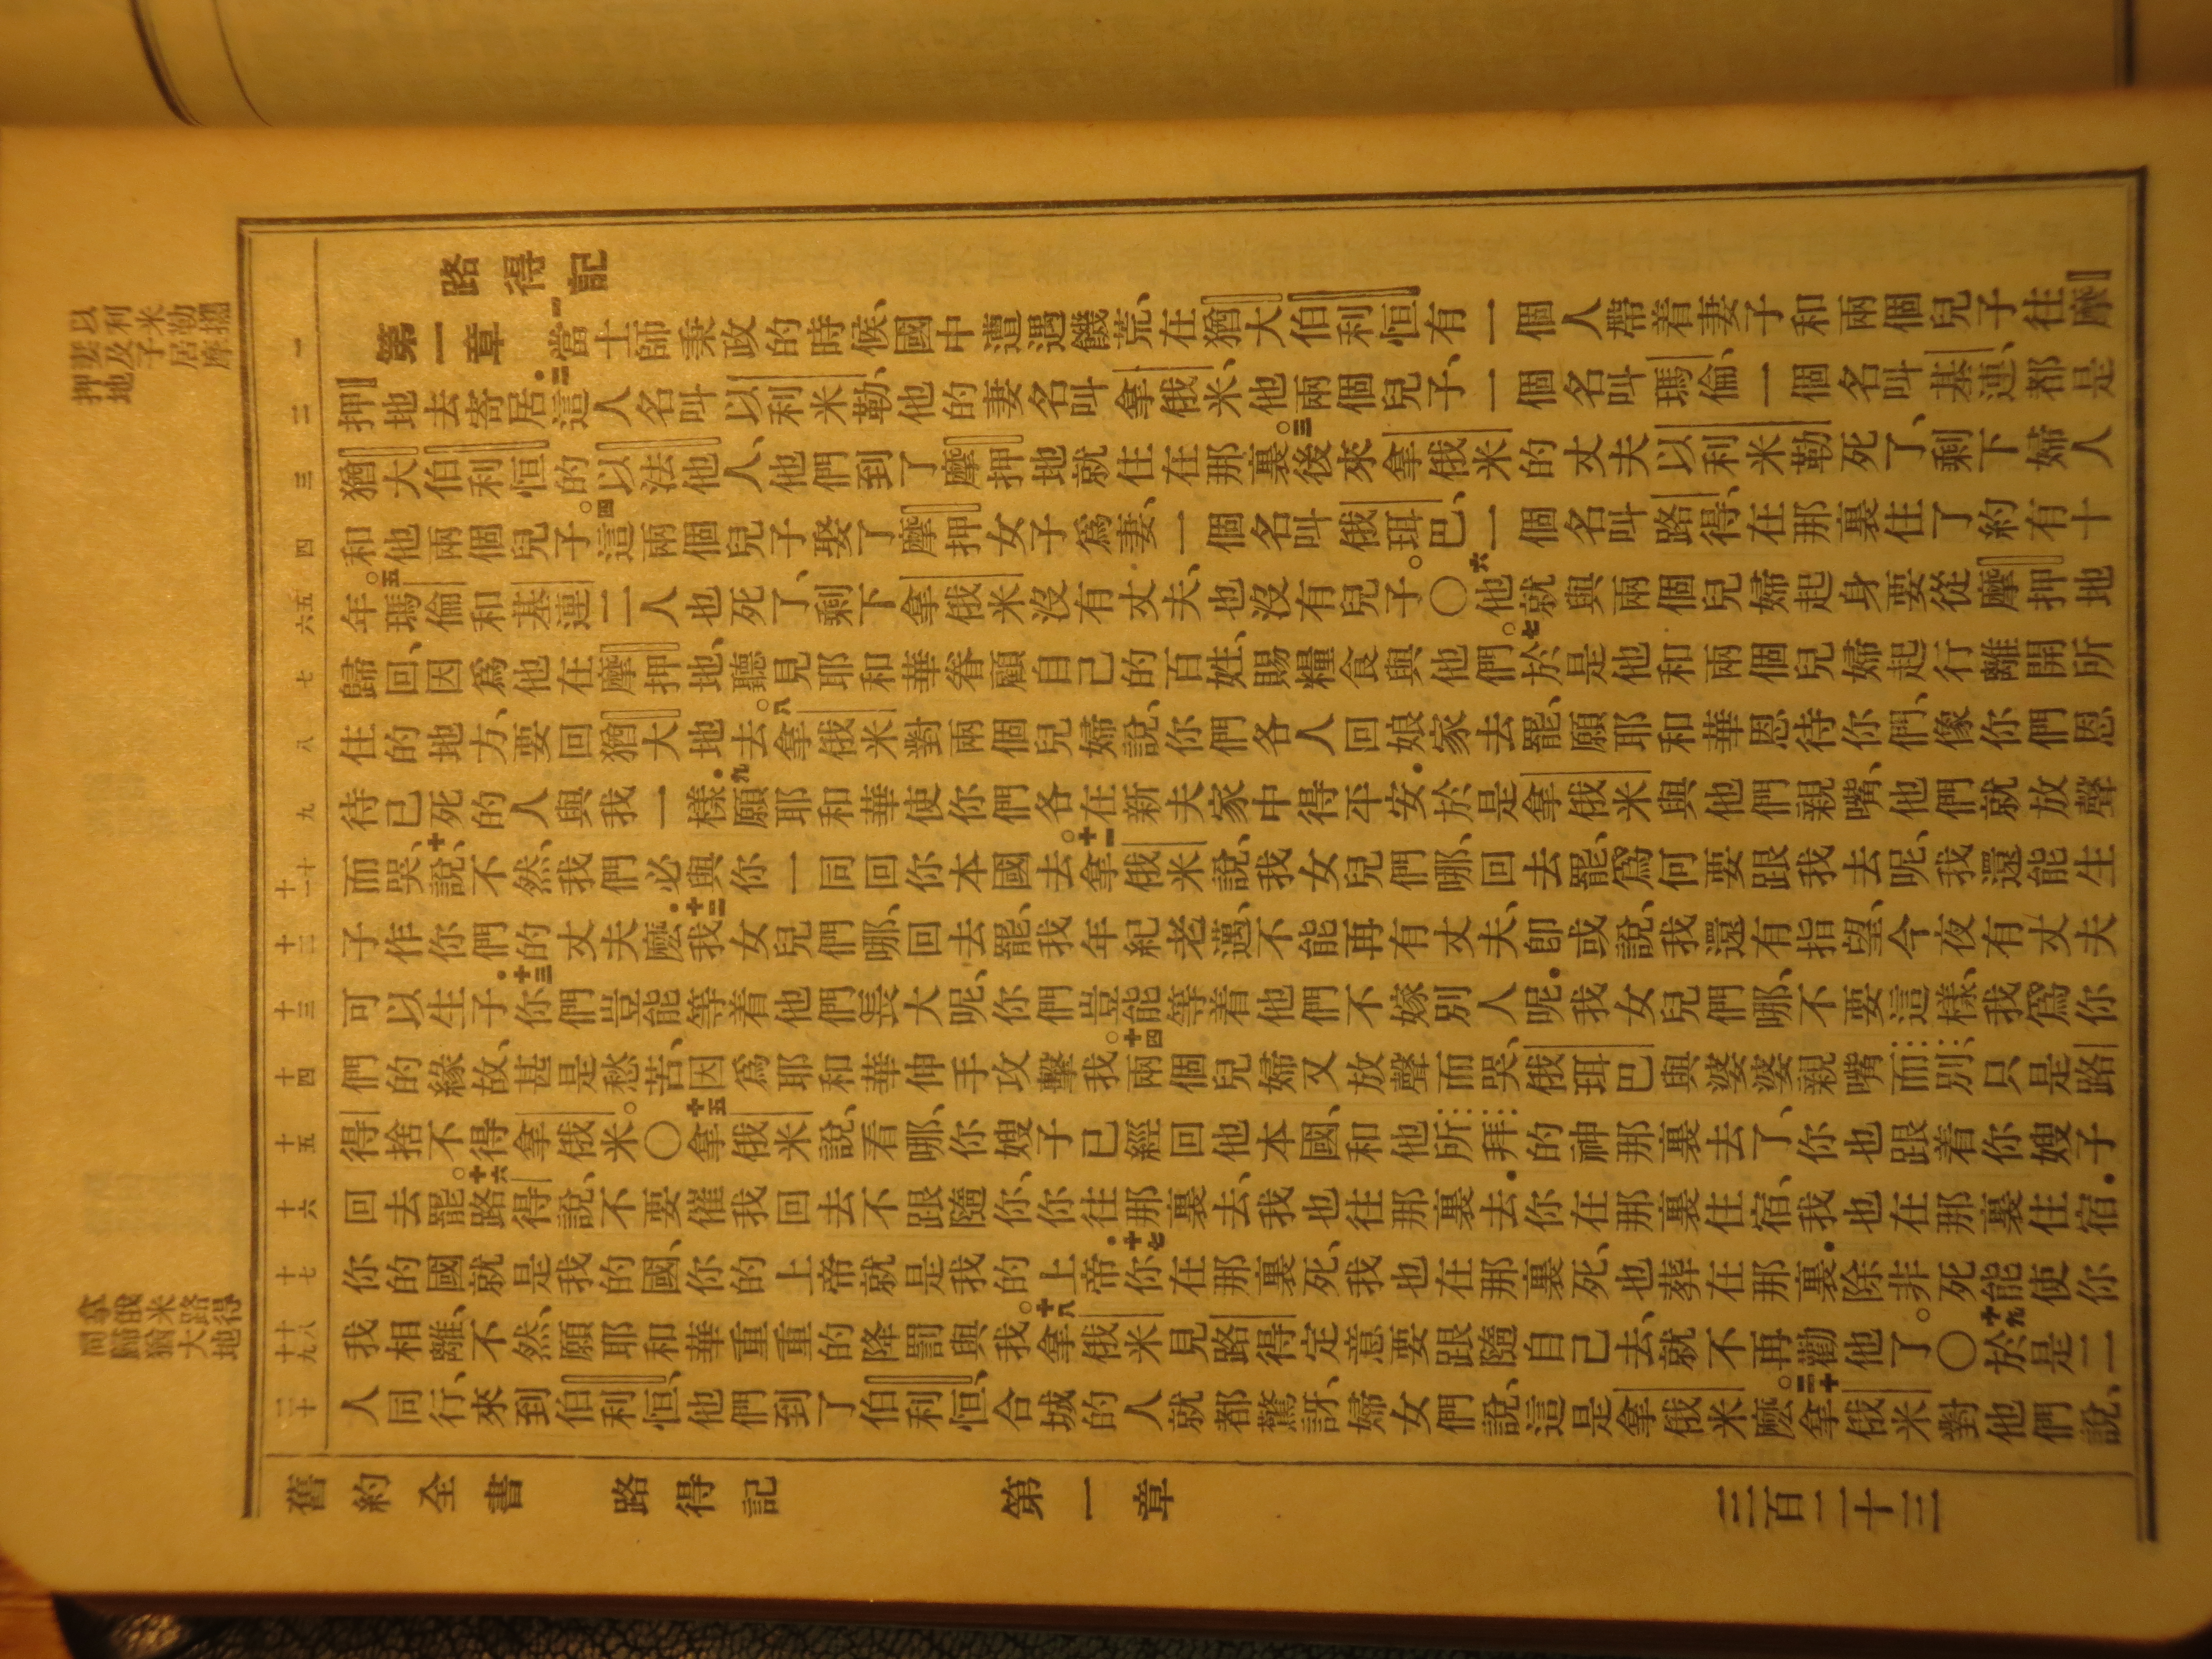 路得記
第一章
一當士師秉政的時候、國中遭遇饑荒、在猶大伯利恒有一個人帶着妻子和兩個兒子往摩
押地去寄居．二這人名叫以利米勒、他的妻名叫拿俄米、他兩個兒子、一個名叫瑪倫、一個名叫基連、都是
猶大伯利恒的以法他人、他們到了摩押地就住在那裏。三後來拿俄米的丈夫以利米勒死了、剩下婦人
和他兩個兒子。四這兩個兒子娶了摩押女子爲妻、一個名叫俄珥巴、一個名叫路得、在那裏住了約有十
年。五瑪倫和基連二人也死了、剩下拿俄米沒有丈夫、也沒有兒子。〇六他就與兩個兒婦起身要從摩押地
歸回、因爲他在摩押地、聽見耶和華眷顧自己的百姓、賜糧食與他們。七於是他和兩個兒婦起行離開所
住的地方、要回猶大地去。八拿俄米對兩個兒婦說、你們各人回娘家去罷、願耶和華恩待你們、像你們恩
待已死的人與我一樣．九願耶和華使你們各在新夫家中得平安．於是拿俄米與他們親嘴、他們就放聲
而哭、十說、不然、我們必與你一同回你本國去。十一拿俄米說、我女兒們哪、回去罷、爲何要跟我去呢、我還能生
子作你們的丈夫麽．十二我女兒們哪、回去罷、我年紀老邁、不能再有丈夫、卽或說、我還有指望、今夜有丈夫
可以生子．十三你們豈能等着他們長大呢、你們豈能等着他們不嫁別人呢．我女兒們哪、不要這樣、我爲你
們的緣故、甚是愁苦、因爲耶和華伸手攻擊我。十四兩個兒婦又放聲而哭、俄珥巴與婆婆親嘴而別、只是路
得捨不得拿俄米。〇十五拿俄米說、看哪、你嫂子已經回他本國、和他所拜的神那裏去了、你也跟着你嫂子
回去罷。十六路得說、不要催我回去不跟隨你、你往那裏去、我也往那裏去．你在那裏住宿、我也在那裏住宿．
你的國就是我的國、你的上帝就是我的上帝．十七你在那裏死、我也在那裏死、也葬在那裏．除非死能使你
我相離、不然、願耶和華重重的降罰與我。十八拿俄米見路得定意要跟隨自己去、就不再勸他了。〇十九於是二
人同行、來到伯利恒、他們到了伯利恒、合城的人就都驚訝、婦女們說、這是拿俄米麽。二十拿俄米對他們說、
舊約全書 路得記 第一章 三百二十三
一
二
三
四
五
六
七
八
九
十
十一
十二
十三
十四
十五
十六
十七
十八
十九
二十
以利米勒攜
妻及子居摩
押地
拿俄米路得
同歸猶大地